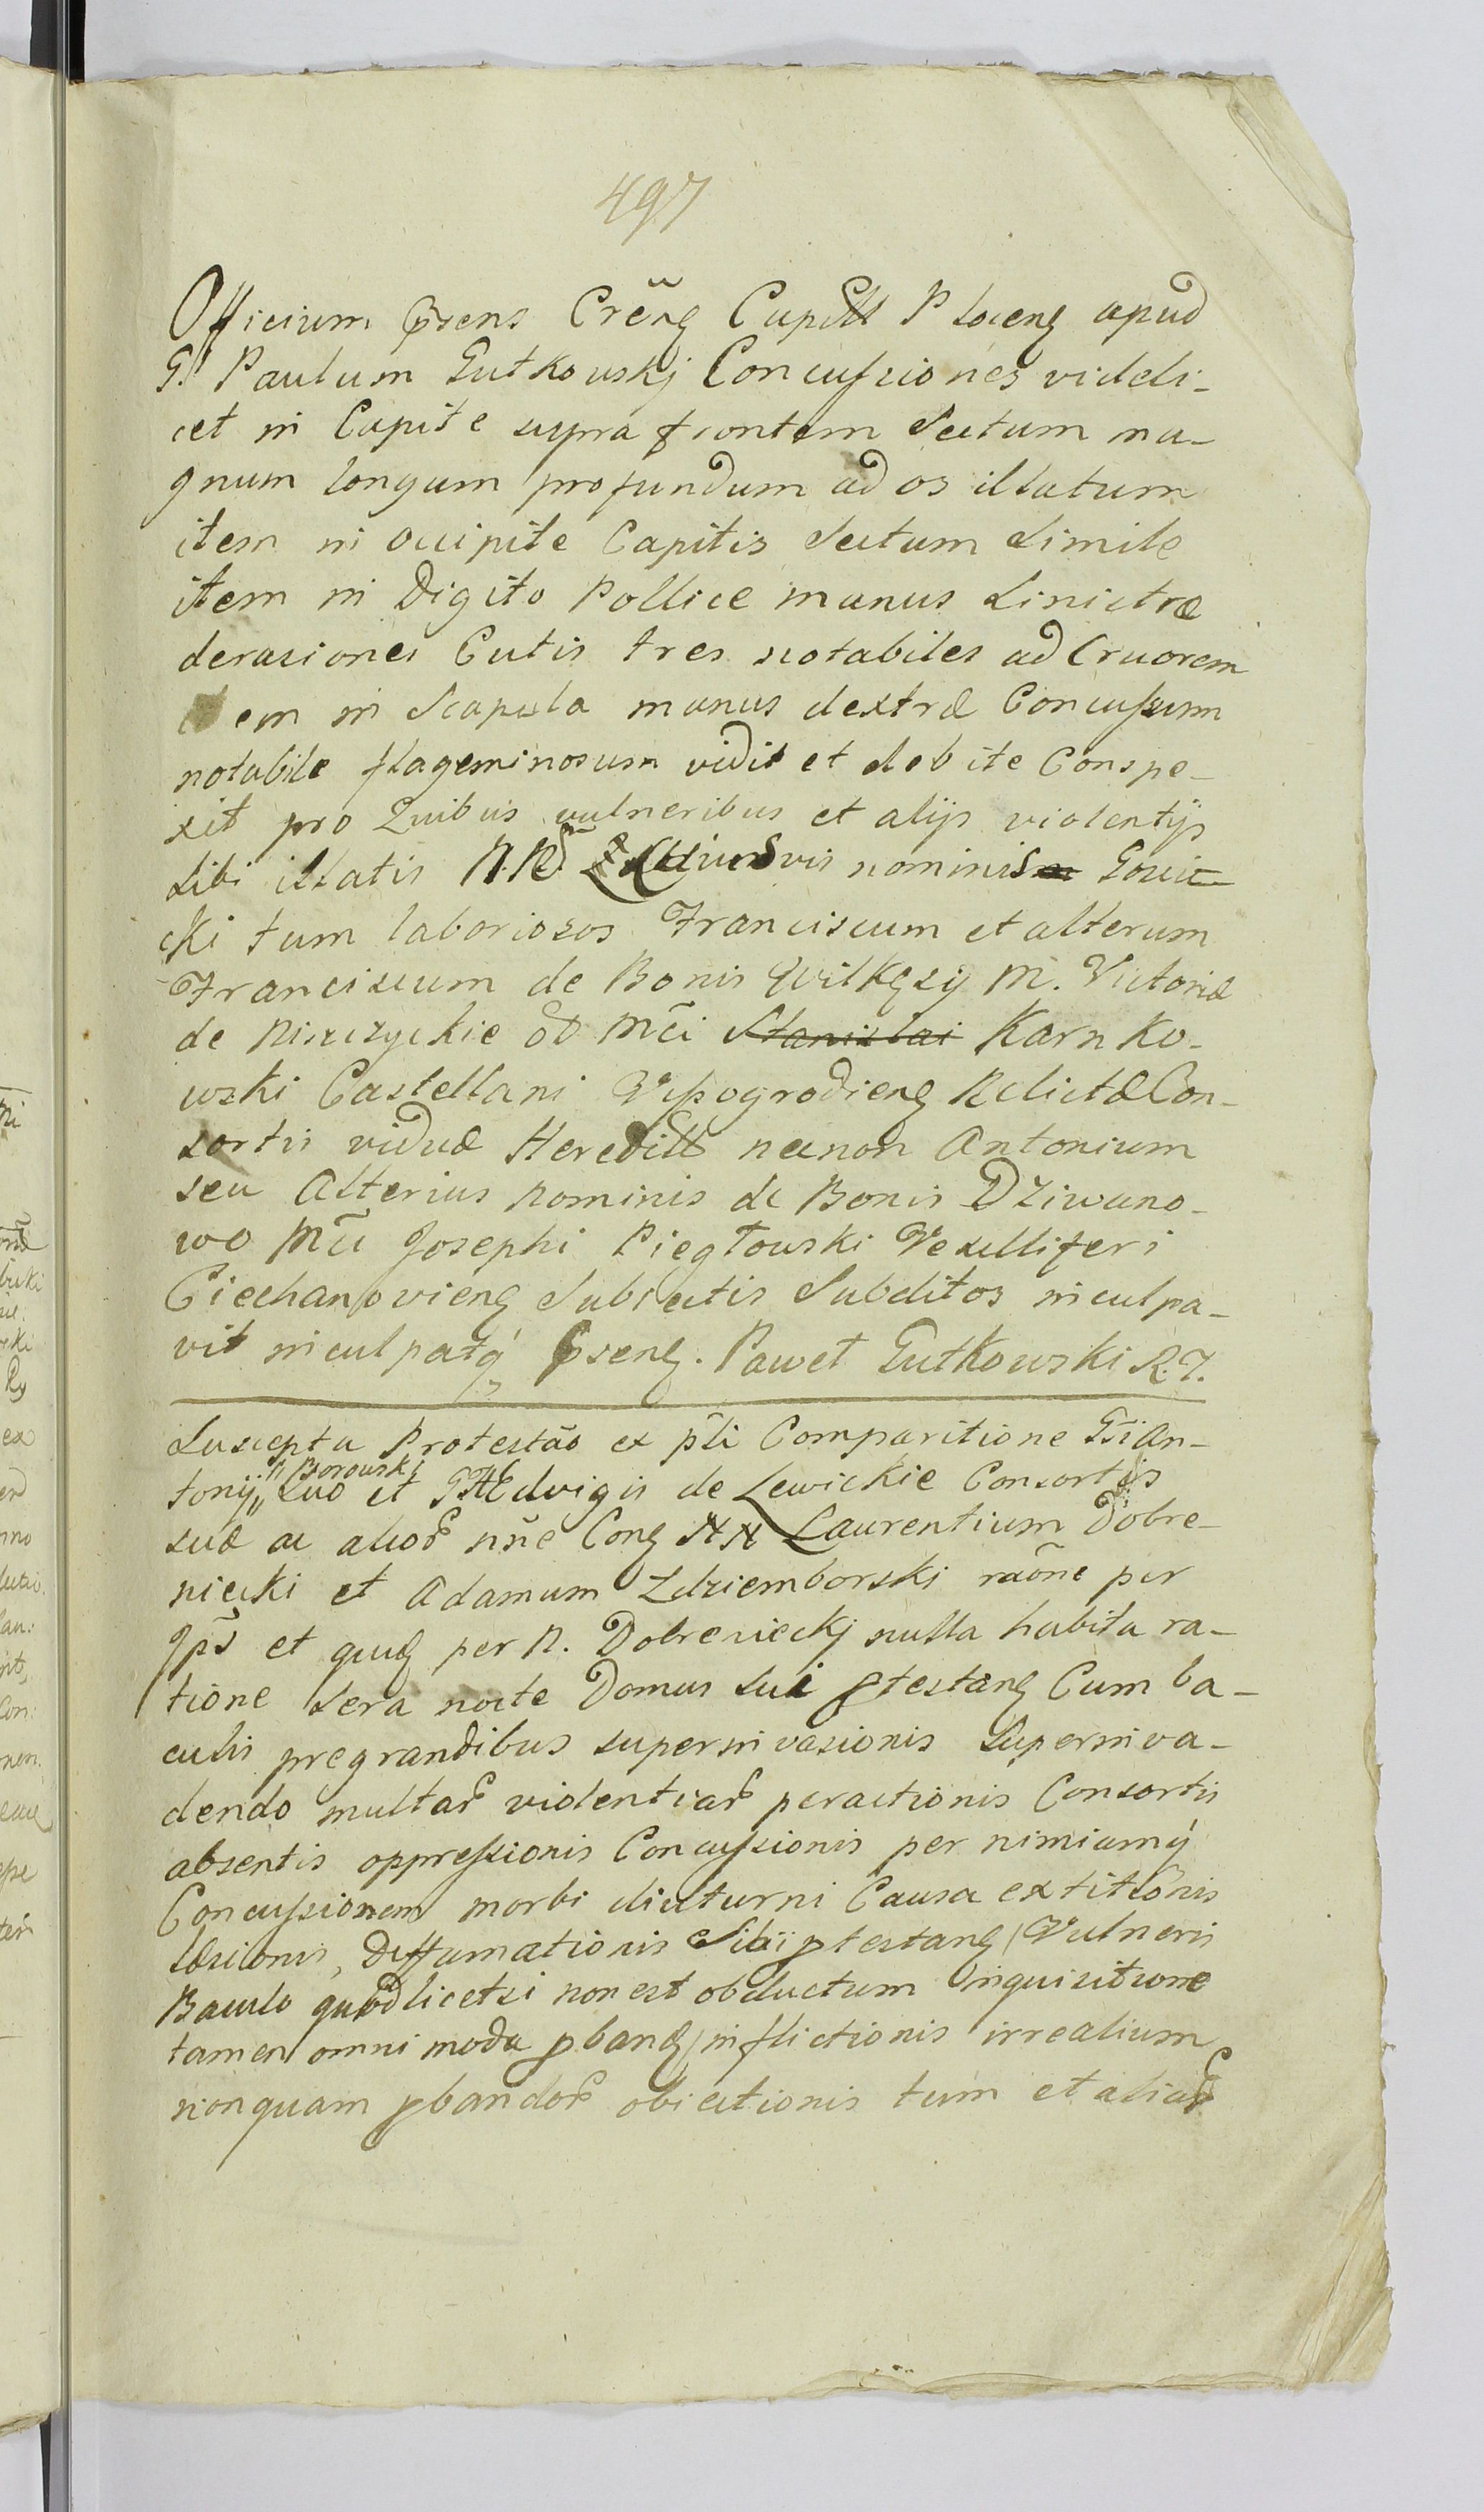 497
Officium p̃sens Crẽnȩ Capitll Plocenȩ apud
G. Paulum Gutkowskj Concuſsiones videli-
cet in Capite supra frontem Sectum ma-
gnum longum profundum ad os illatum
item in occipite Capitis Sectum Simile
item in Digito Pollice manus Sinistræ
derasiones Cutis tres notabiles ad Cruorem
item in Scapula manus dextræ Concuſsum
notabile flageminosum vidit et debite Conspe-
xit pro Quibus vulneribus et alijs violentijs
Sibi illatis N.N. Cuiusvis nominis
cki tum laboriosos Franciscum et alterum
Franciscum de Bonis Wilkęsy M. Victoriæ
de Niszczyckie od Mci Stanislai Karnko-
wski Castellani Wyſsogrodienȩ Relictæ Con-
sortis viduæ Hereditt necnon Antonium
seu Alterius nominis de Bonis Dziwano-
wo Mci Josephi Piegłowski Vexilliferi
Ciechanovienȩ Subiectis Subditos inculpa-
vit inculpatq́ p̃senȩ. Paweł Gutkowski R.J.
Suscepta Protestão ex p̃ti Comparitione G̃i An-
tonij Borowski suo et G Hedvigis de Lewickie Consortis
suæ ac alior̃ nñe Conȩ NN Laurentium Dobre-
niecki et Adamum Zdziemborski raõne per
Ip̃s et quidȩ per N. Dobrenieckj nulla habita ra-
tione sera nocte Domus sui ptestanȩ Cum ba-
culis pregrandibus superinvasionis Superinva-
dendo multar̃ violentiar̃ peractionis Consortis
absentis oppreſsionis Concuſsionis per nimiamq́
Concuſsionem morbi diuturni Causa extitionis
læsionis, Deffamationis Sibi ptestanȩ (Vulneris
Baculo quod licet si non est obductum Inquisitione
tamen omni moda pbanȩ) inflictionis irrealium
nonquam pbandor̃ obiectionis tum et aliar̃